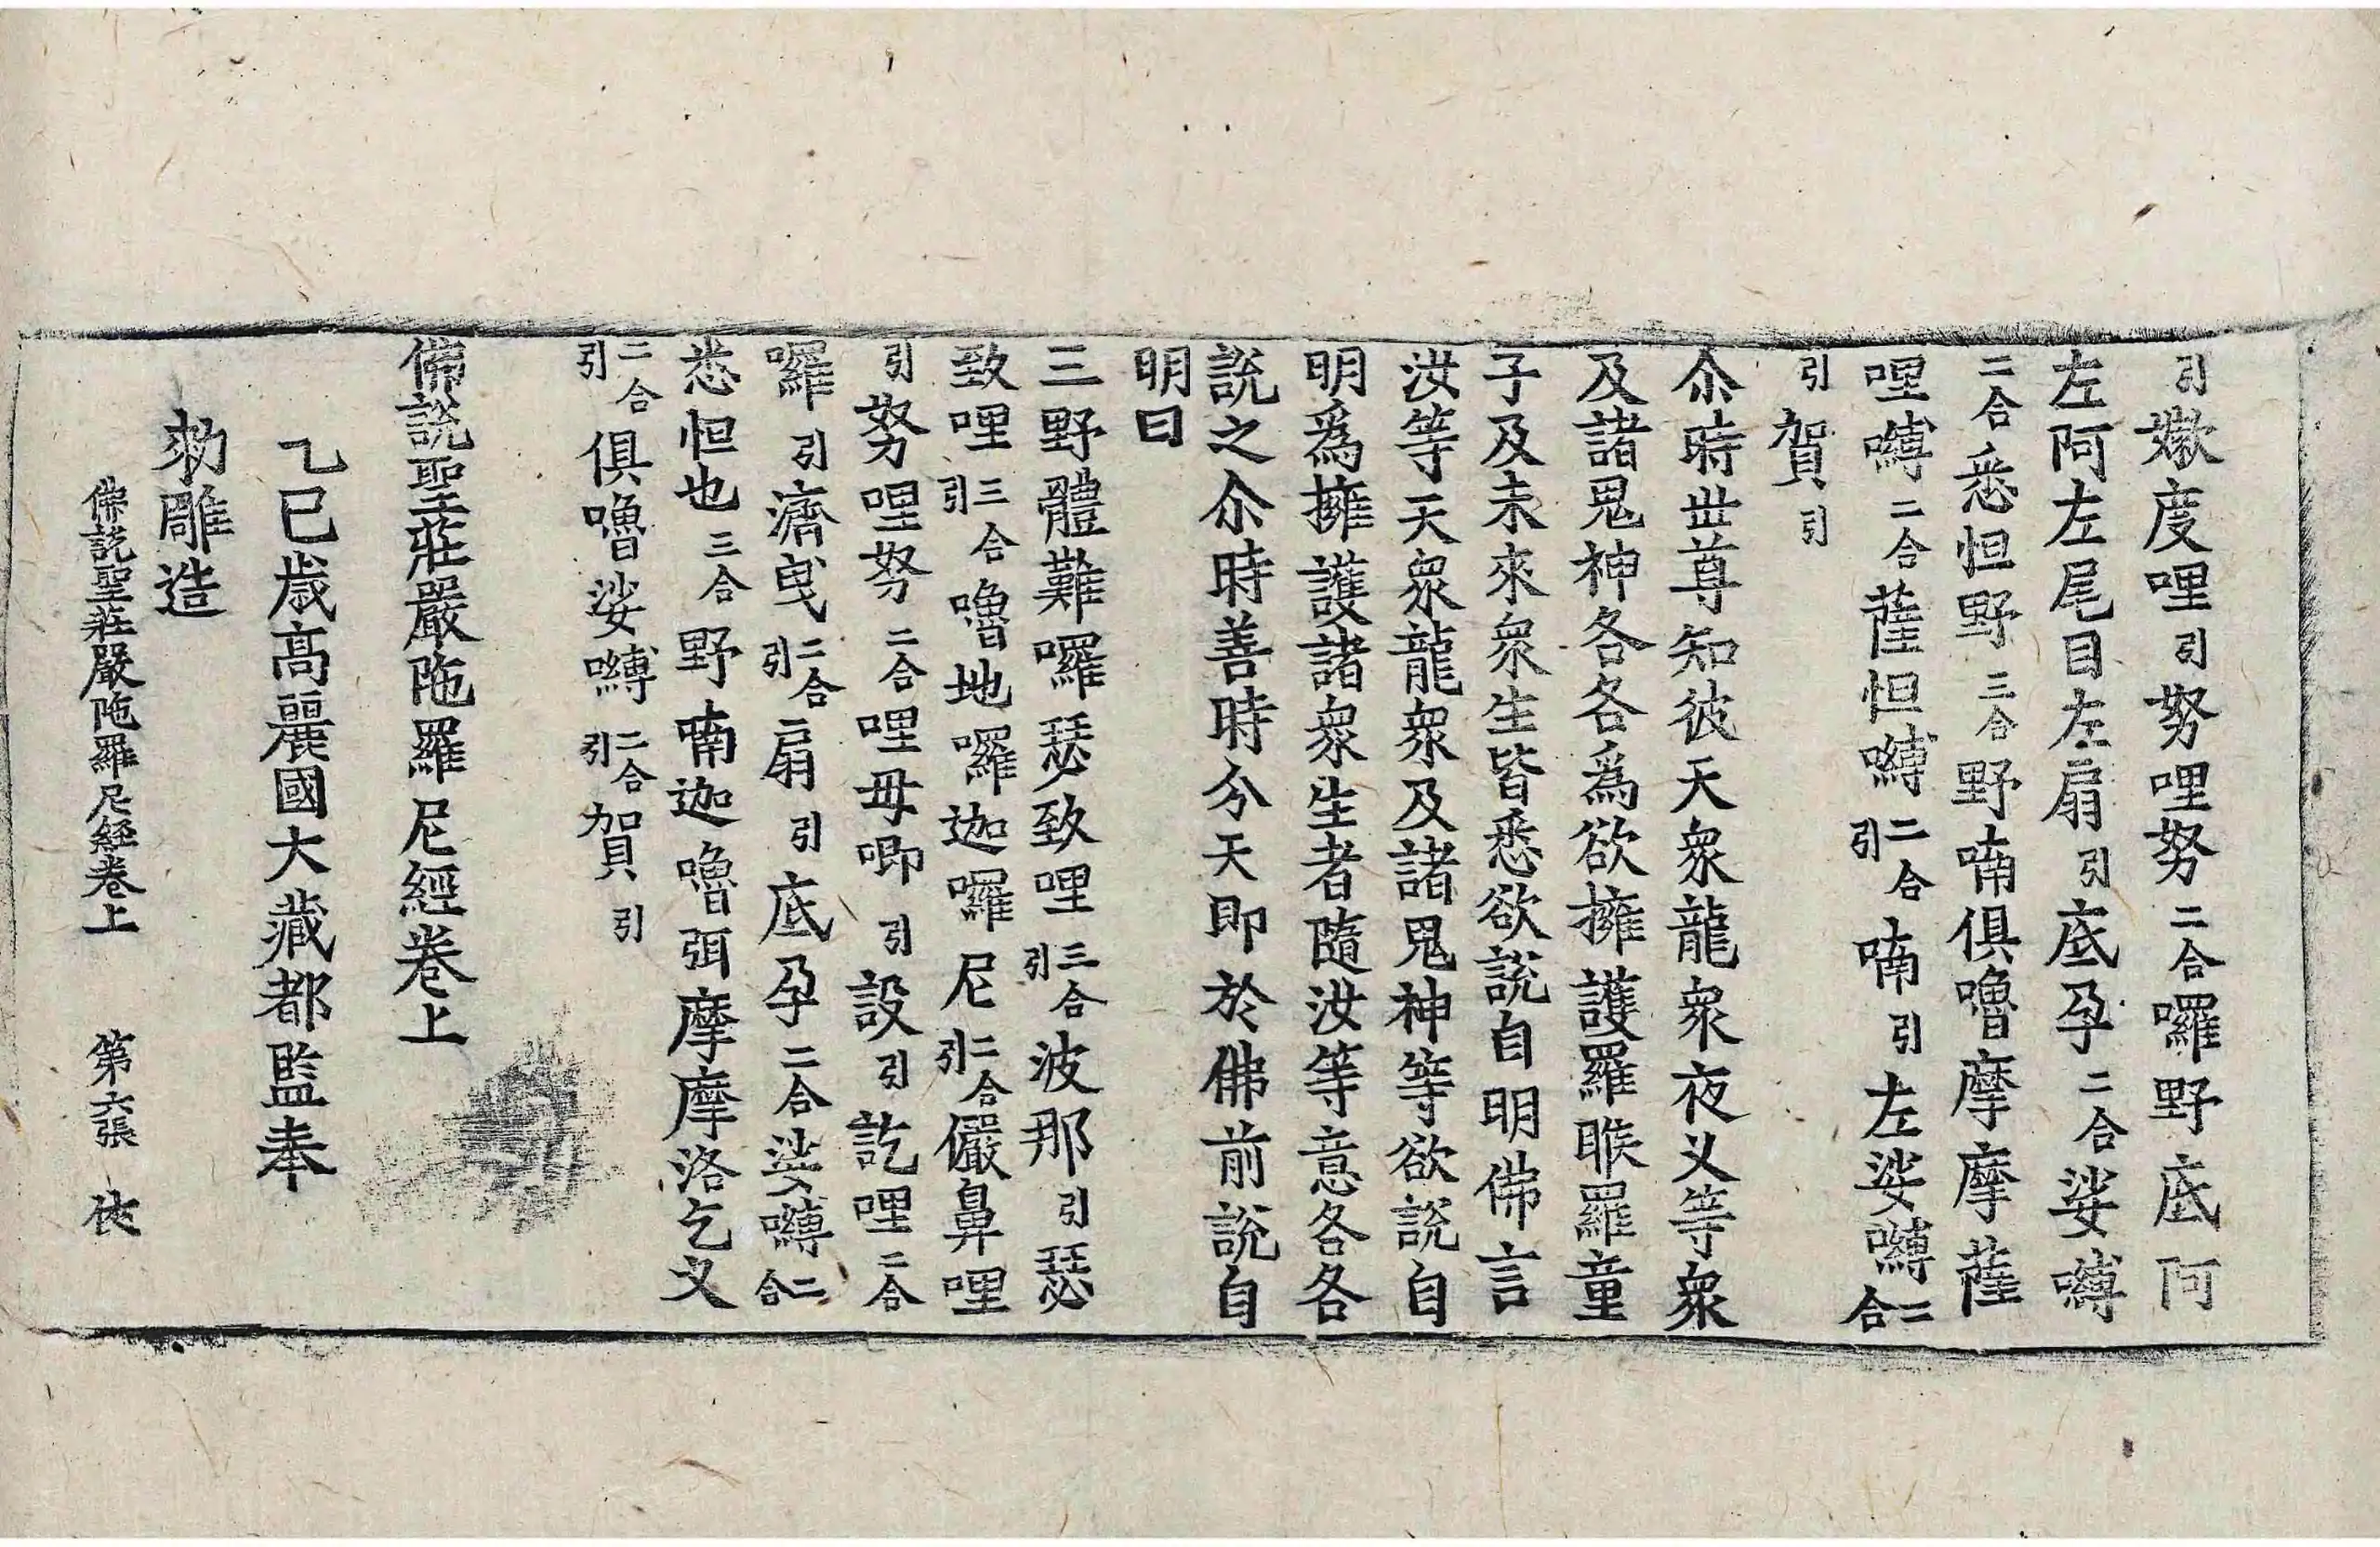 引嫰度哩引努哩努二合囉野底阿
左阿左尾目左扇引底孕二合娑嚩
二合悉怛野三合野喃俱嚕摩摩薩
哩嚩二合薩怛嚩二合引喃引左娑嚩二合
引賀引
尒時世尊知彼天衆龍衆夜叉等衆
及諸鬼神各各爲欲擁護羅睺羅童
子及未來衆生皆悉欲說自明佛言
汝等天衆龍衆及諸鬼神等欲說自
明爲擁護諸衆生者隨汝等意各各
說之尒時善時分天即於佛前說自
明曰
三野體難囉瑟致哩三合引波那引瑟
致哩三合引嚕地囉迦囉尼二合引儼鼻哩
引努哩努二合哩毋唧引設引訖哩二合
囉引濟曳二合引扇引底孕二合娑嚩二合
悉怛也三合野喃迦嚕弭摩摩洛乞叉
二合引俱嚕娑嚩二合引賀引
佛說聖莊嚴陁羅尼經卷上
乙巳歲高麗國大藏都監奉
勑雕造
佛說聖莊嚴陁羅尼經卷上 第六張 俠